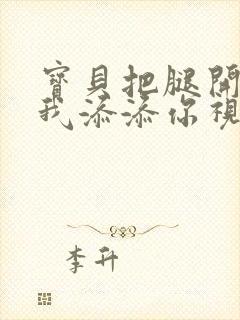 寶貝把腿開
我添添你視
李升